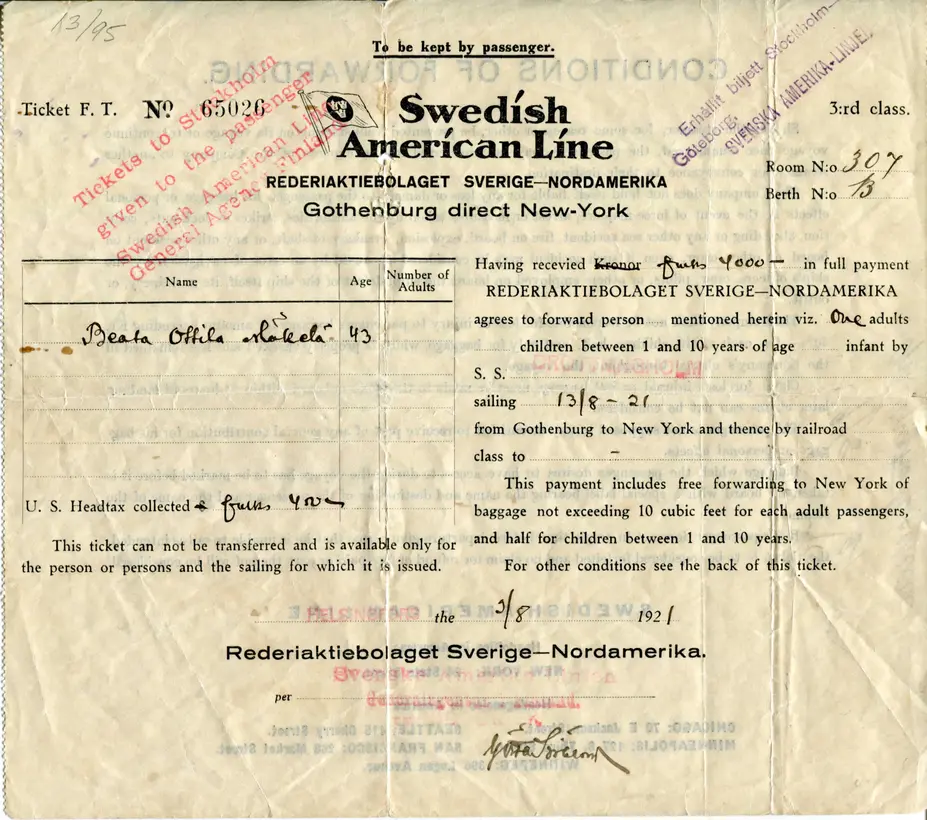 13/95
To be kept by passenger.
Ticket F. T. Nº 65026
Tickets to Stockholm
given to the passenger
Swedish American Line
General Agency Finland
Swedish
American Line
REDERIAKTIEBOLAGET SVERIGE—NORDAMERIKA
Gothenburg direct New-York
Erhållit biljett Stockholm—
Göteborg.
SVENSKA AMERIKA-LINJEN
3:rd class.
Room N:o 307
Berth N:o B
Name Age Number of Adults
Beata Ottila Mäkelä 43
U. S. Headtax collected fmks 400—
This ticket can not be transferred and is available only for
the person or persons and the sailing for which it is issued.
Having recevied Kronor fmks 4000— in full payment
REDERIAKTIEBOLAGET SVERIGE—NORDAMERIKA
agrees to forward person mentioned herein viz. One adults
children between 1 and 10 years of age infant by
S. S.
sailing 13/8 – 21
from Gothenburg to New York and thence by railroad
class to –
This payment includes free forwarding to New York of
baggage not exceeding 10 cubic feet for each adult passengers,
and half for children between 1 and 10 years.
For other conditions see the back of this ticket.
HELSINGFORS the 3/8 1921
Rederiaktiebolaget Sverige—Nordamerika.
Svenska Amerika Linien
per